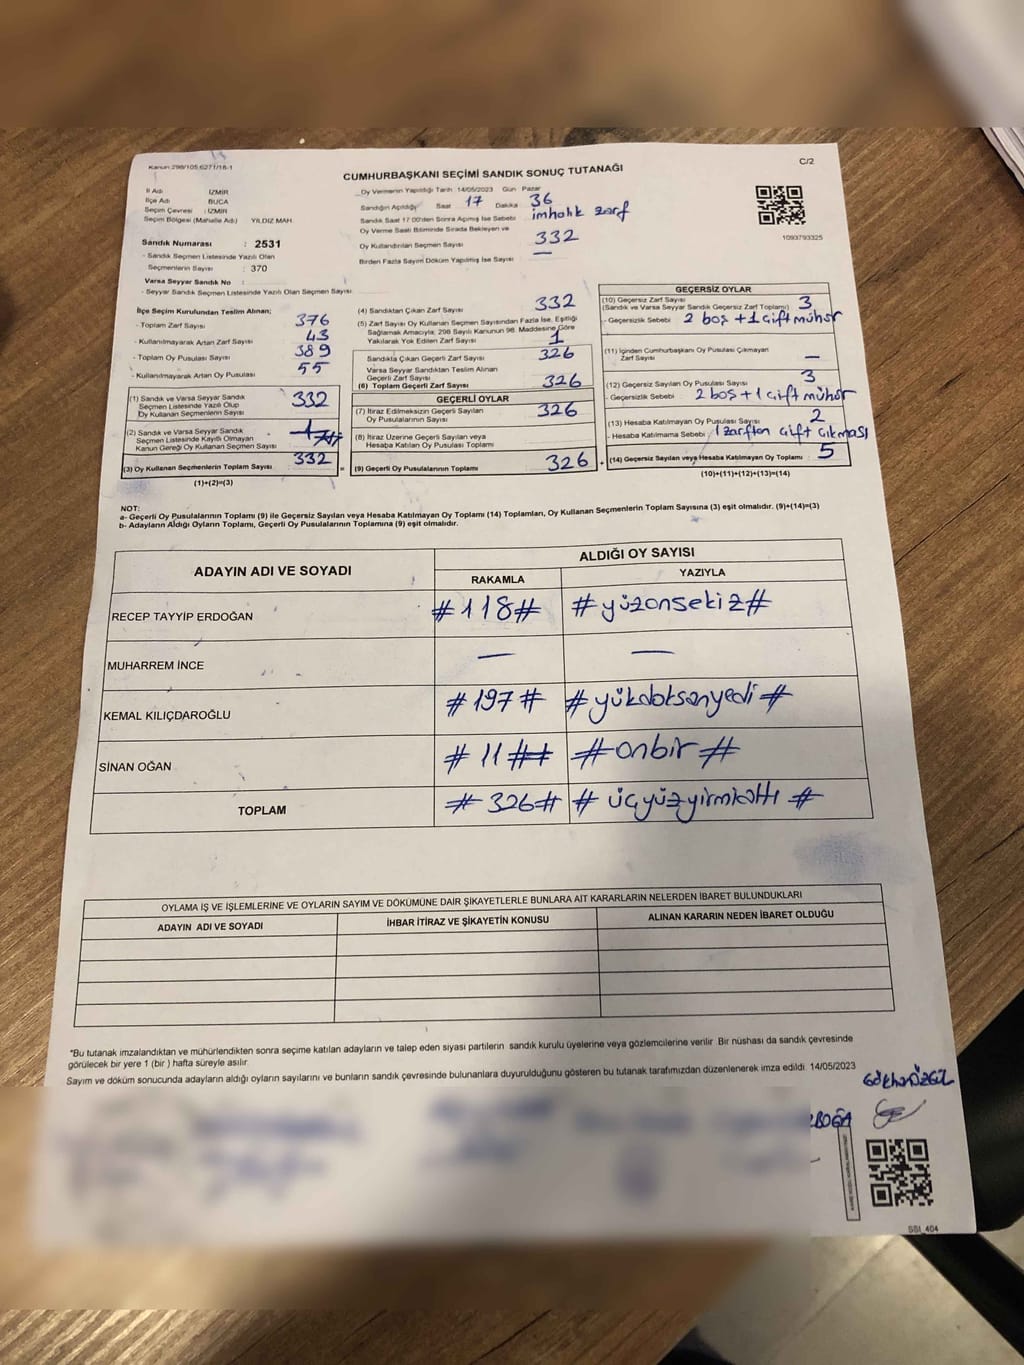 Kanun:298/105,6271/18-1
C/2
CUMHURBAŞKANI SEÇİMİ SANDIK SONUÇ TUTANAĞI
İl Adı İZMİR
İlçe Adı BUCA
Seçim Çevresi : İZMİR
Seçim Bölgesi (Mahalle Adı) YILDIZ MAH.
Sandık Numarası : 2531
- Sandık Seçmen Listesinde Yazılı Olan
Seçmenlerin Sayısı : 370
Varsa Seyyar Sandık No :
- Seyyar Sandık Seçmen Listesinde Yazılı Olan Seçmen Sayısı:
Oy Vermenin Yapıldığı Tarih :14/05/2023 Gün Pazar
Sandığın Açıldığı Saat 17 Dakika 36
Sandık Saat 17:00'den Sonra Açılmış İse Sebebi imhalık zarf
Oy Verme Saati Bitiminde Sırada Bekleyen ve
Oy Kullandırılan Seçmen Sayısı 332
Birden Fazla Sayım Döküm Yapılmış İse Sayısı —
1093793325
İlçe Seçim Kurulundan Teslim Alınan;
- Toplam Zarf Sayısı 376
- Kullanılmayarak Artan Zarf Sayısı 43
- Toplam Oy Pusulası Sayısı 389
- Kullanılmayarak Artan Oy Pusulası 55
(1) Sandık ve Varsa Seyyar Sandık
Seçmen Listesinde Yazılı Olup
Oy Kullanan Seçmenlerin Sayısı 332
(2) Sandık ve Varsa Seyyar Sandık
Seçmen Listesinde Kayıtlı Olmayan
Kanun Gereği Oy Kullanan Seçmen Sayısı
(3) Oy Kullanan Seçmenlerin Toplam Sayısı 332 =
(1)+(2)=(3)
(4) Sandıktan Çıkan Zarf Sayısı 332
(5) Zarf Sayısı Oy Kullanan Seçmen Sayısından Fazla İse, Eşitliği
Sağlamak Amacıyla; 298 Sayılı Kanunun 98. Maddesine Göre
Yakılarak Yok Edilen Zarf Sayısı 1
Sandıkta Çıkan Geçerli Zarf Sayısı 326
Varsa Seyyar Sandıktan Teslim Alınan
Geçerli Zarf Sayısı
(6) Toplam Geçerli Zarf Sayısı 326
GEÇERLİ OYLAR
(7) İtiraz Edilmeksizin Geçerli Sayılan
Oy Pusulalarının Sayısı 326
(8) İtiraz Üzerine Geçerli Sayılan veya
Hesaba Katılan Oy Pusulası Toplamı
(9) Geçerli Oy Pusulalarının Toplamı 326 +
GEÇERSİZ OYLAR
(10) Geçersiz Zarf Sayısı
(Sandık ve Varsa Seyyar Sandık Geçersiz Zarf Toplamı) 3
- Geçersizlik Sebebi : 2 boş + 1 çift mühür
(11) İçinden Cumhurbaşkanı Oy Pusulası Çıkmayan
Zarf Sayısı —
(12) Geçersiz Sayılan Oy Pusulası Sayısı 3
- Geçersizlik Sebebi : 2 boş + 1 çift mühür
(13) Hesaba Katılmayan Oy Pusulası Sayısı 2
- Hesaba Katılmama Sebebi : 1 zarftan çift çıkması
(14) Geçersiz Sayılan veya Hesaba Katılmayan Oy Toplamı : 5
(10)+(11)+(12)+(13)=(14)
NOT:
a- Geçerli Oy Pusulalarının Toplamı (9) ile Geçersiz Sayılan veya Hesaba Katılmayan Oy Toplamı (14) Toplamları, Oy Kullanan Seçmenlerin Toplam Sayısına (3) eşit olmalıdır. (9)+(14)=(3)
b- Adayların Aldığı Oyların Toplamı, Geçerli Oy Pusulalarının Toplamına (9) eşit olmalıdır.
ADAYIN ADI VE SOYADI
ALDIĞI OY SAYISI
RAKAMLA YAZIYLA
RECEP TAYYİP ERDOĞAN #118# #yüzonsekiz#
MUHARREM İNCE — —
KEMAL KILIÇDAROĞLU #197# #yükdoksanyedi#
SİNAN OĞAN #11## #onbir#
TOPLAM #326# #üçyüzyirmialtı#
OYLAMA İŞ VE İŞLEMLERİNE VE OYLARIN SAYIM VE DÖKÜMÜNE DAİR ŞİKAYETLERLE BUNLARA AİT KARARLARIN NELERDEN İBARET BULUNDUKLARI
ADAYIN ADI VE SOYADI İHBAR İTİRAZ VE ŞİKAYETİN KONUSU ALINAN KARARIN NEDEN İBARET OLDUĞU
*Bu tutanak imzalandıktan ve mühürlendikten sonra seçime katılan adayların ve talep eden siyasi partilerin sandık kurulu üyelerine veya gözlemcilerine verilir. Bir nüshası da sandık çevresinde
görülecek bir yere 1 (bir) hafta süreyle asılır.
Sayım ve döküm sonucunda adayların aldığı oyların sayılarını ve bunların sandık çevresinde bulunanlara duyurulduğunu gösteren bu tutanak tarafımızdan düzenlenerek imza edildi. 14/05/2023
Gökhan ÖZGÜL
BOĞA
SSI_404